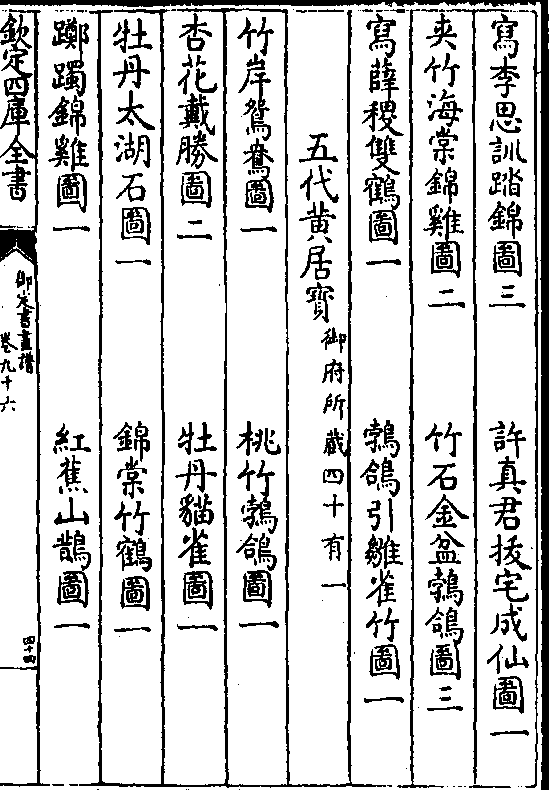 寫李思訓踏錦圖三　許真君拔宅成仙圖一
夾竹海棠錦雞圖二　竹石金盆鵓鴿圖三
寫薛稷雙鶴圖一　鵓鴿引雛雀竹圖一
五代黄居寶御府所藏四十有一
竹岸鴛鴦圖一　桃竹鵓鴿圖一
杏花戴勝圖二　牡丹貓雀圖一
牡丹太湖石圖一　錦棠竹鶴圖一
躑躅錦雞圖一　紅蕉山鵲圖一
欽定四庫全書
御定書畫譜
卷九十六
四十四